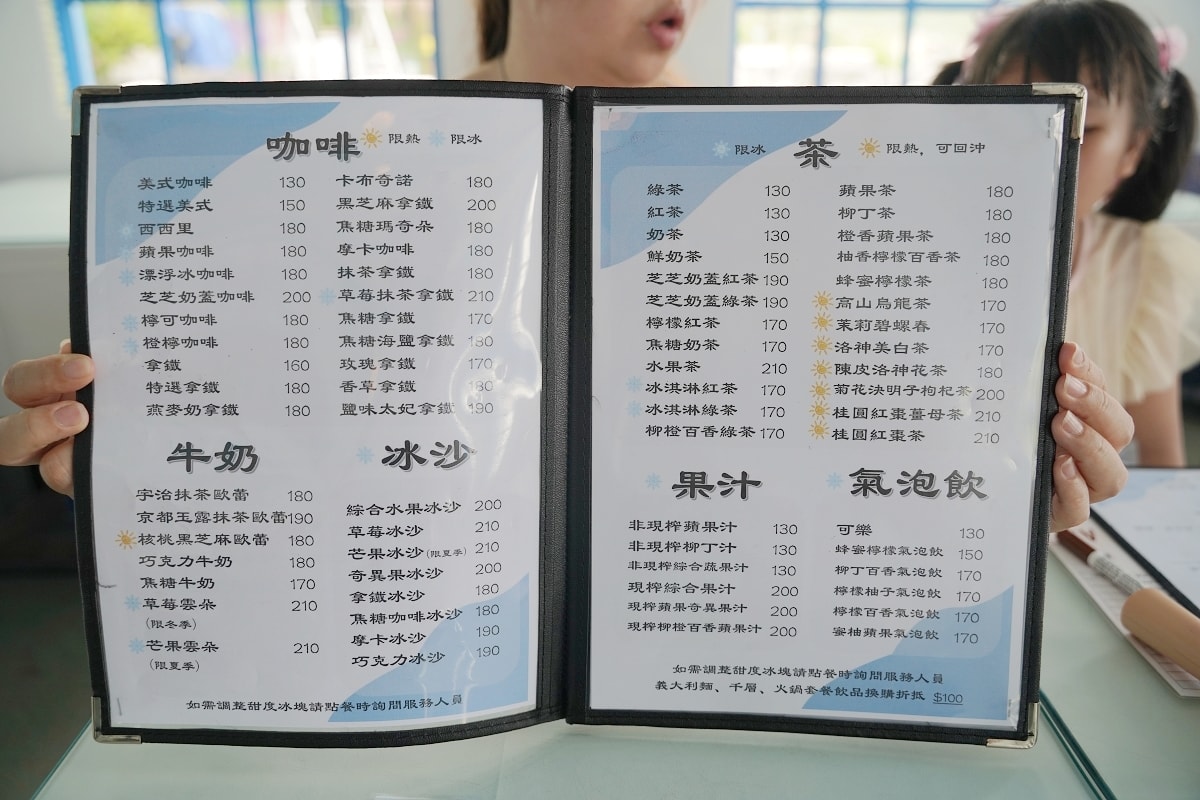 咖啡 限熱 限冰
美式咖啡 130
特選美式 150
西西里 180
蘋果咖啡 180
漂浮冰咖啡 180
芝芝奶蓋咖啡 200
檸可咖啡 180
橙檸咖啡 180
拿鐵 160
特選拿鐵 180
燕麥奶拿鐵 180
卡布奇諾 180
黑芝麻拿鐵 200
焦糖瑪奇朵 180
摩卡咖啡 180
抹茶拿鐵 180
草莓抹茶拿鐵 210
焦糖拿鐵 170
焦糖海鹽拿鐵 180
玫瑰拿鐵 170
香草拿鐵 180
鹽味太妃拿鐵 190
牛奶
宇治抹茶歐蕾 180
京都玉露抹茶歐蕾 190
核桃黑芝麻歐蕾 180
巧克力牛奶 180
焦糖牛奶 170
草莓雲朵 210
(限冬季)
芒果雲朵 210
(限夏季)
冰沙
綜合水果冰沙 200
草莓冰沙 210
芒果冰沙(限夏季) 210
奇異果冰沙 200
拿鐵冰沙 180
焦糖咖啡冰沙 180
摩卡冰沙 190
巧克力冰沙 190
如需調整甜度冰塊請點餐時詢問服務人員
限冰 茶 限熱，可回沖
綠茶 130
紅茶 130
奶茶 130
鮮奶茶 150
芝芝奶蓋紅茶 190
芝芝奶蓋綠茶 190
檸檬紅茶 170
焦糖奶茶 170
水果茶 210
冰淇淋紅茶 170
冰淇淋綠茶 170
柳橙百香綠茶 170
蘋果茶 180
柳丁茶 180
橙香蘋果茶 180
柚香檸檬百香茶 180
蜂蜜檸檬茶 180
高山烏龍茶 170
茉莉碧螺春 170
洛神美白茶 170
陳皮洛神花茶 180
菊花決明子枸杞茶 200
桂圓紅棗薑母茶 210
桂圓紅棗茶 210
果汁
非現榨蘋果汁 130
非現榨柳丁汁 130
非現榨綜合蔬果汁 130
現榨綜合果汁 200
現榨蘋果奇異果汁 200
現榨柳橙百香蘋果汁 200
氣泡飲
可樂 130
蜂蜜檸檬氣泡飲 150
柳丁百香氣泡飲 170
檸檬柚子氣泡飲 170
檸檬百香氣泡飲 170
蜜柚蘋果氣泡飲 170
如需調整甜度冰塊請點餐時詢問服務人員
義大利麵、千層、火鍋套餐飲品換購折抵 $100